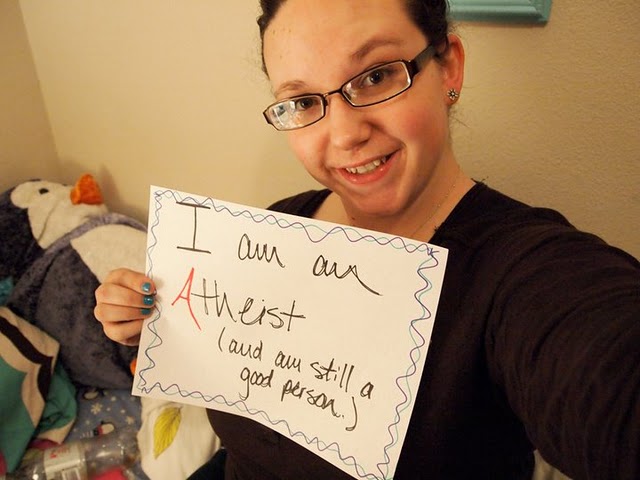 I am an
Atheist
(and am still a
good person.)